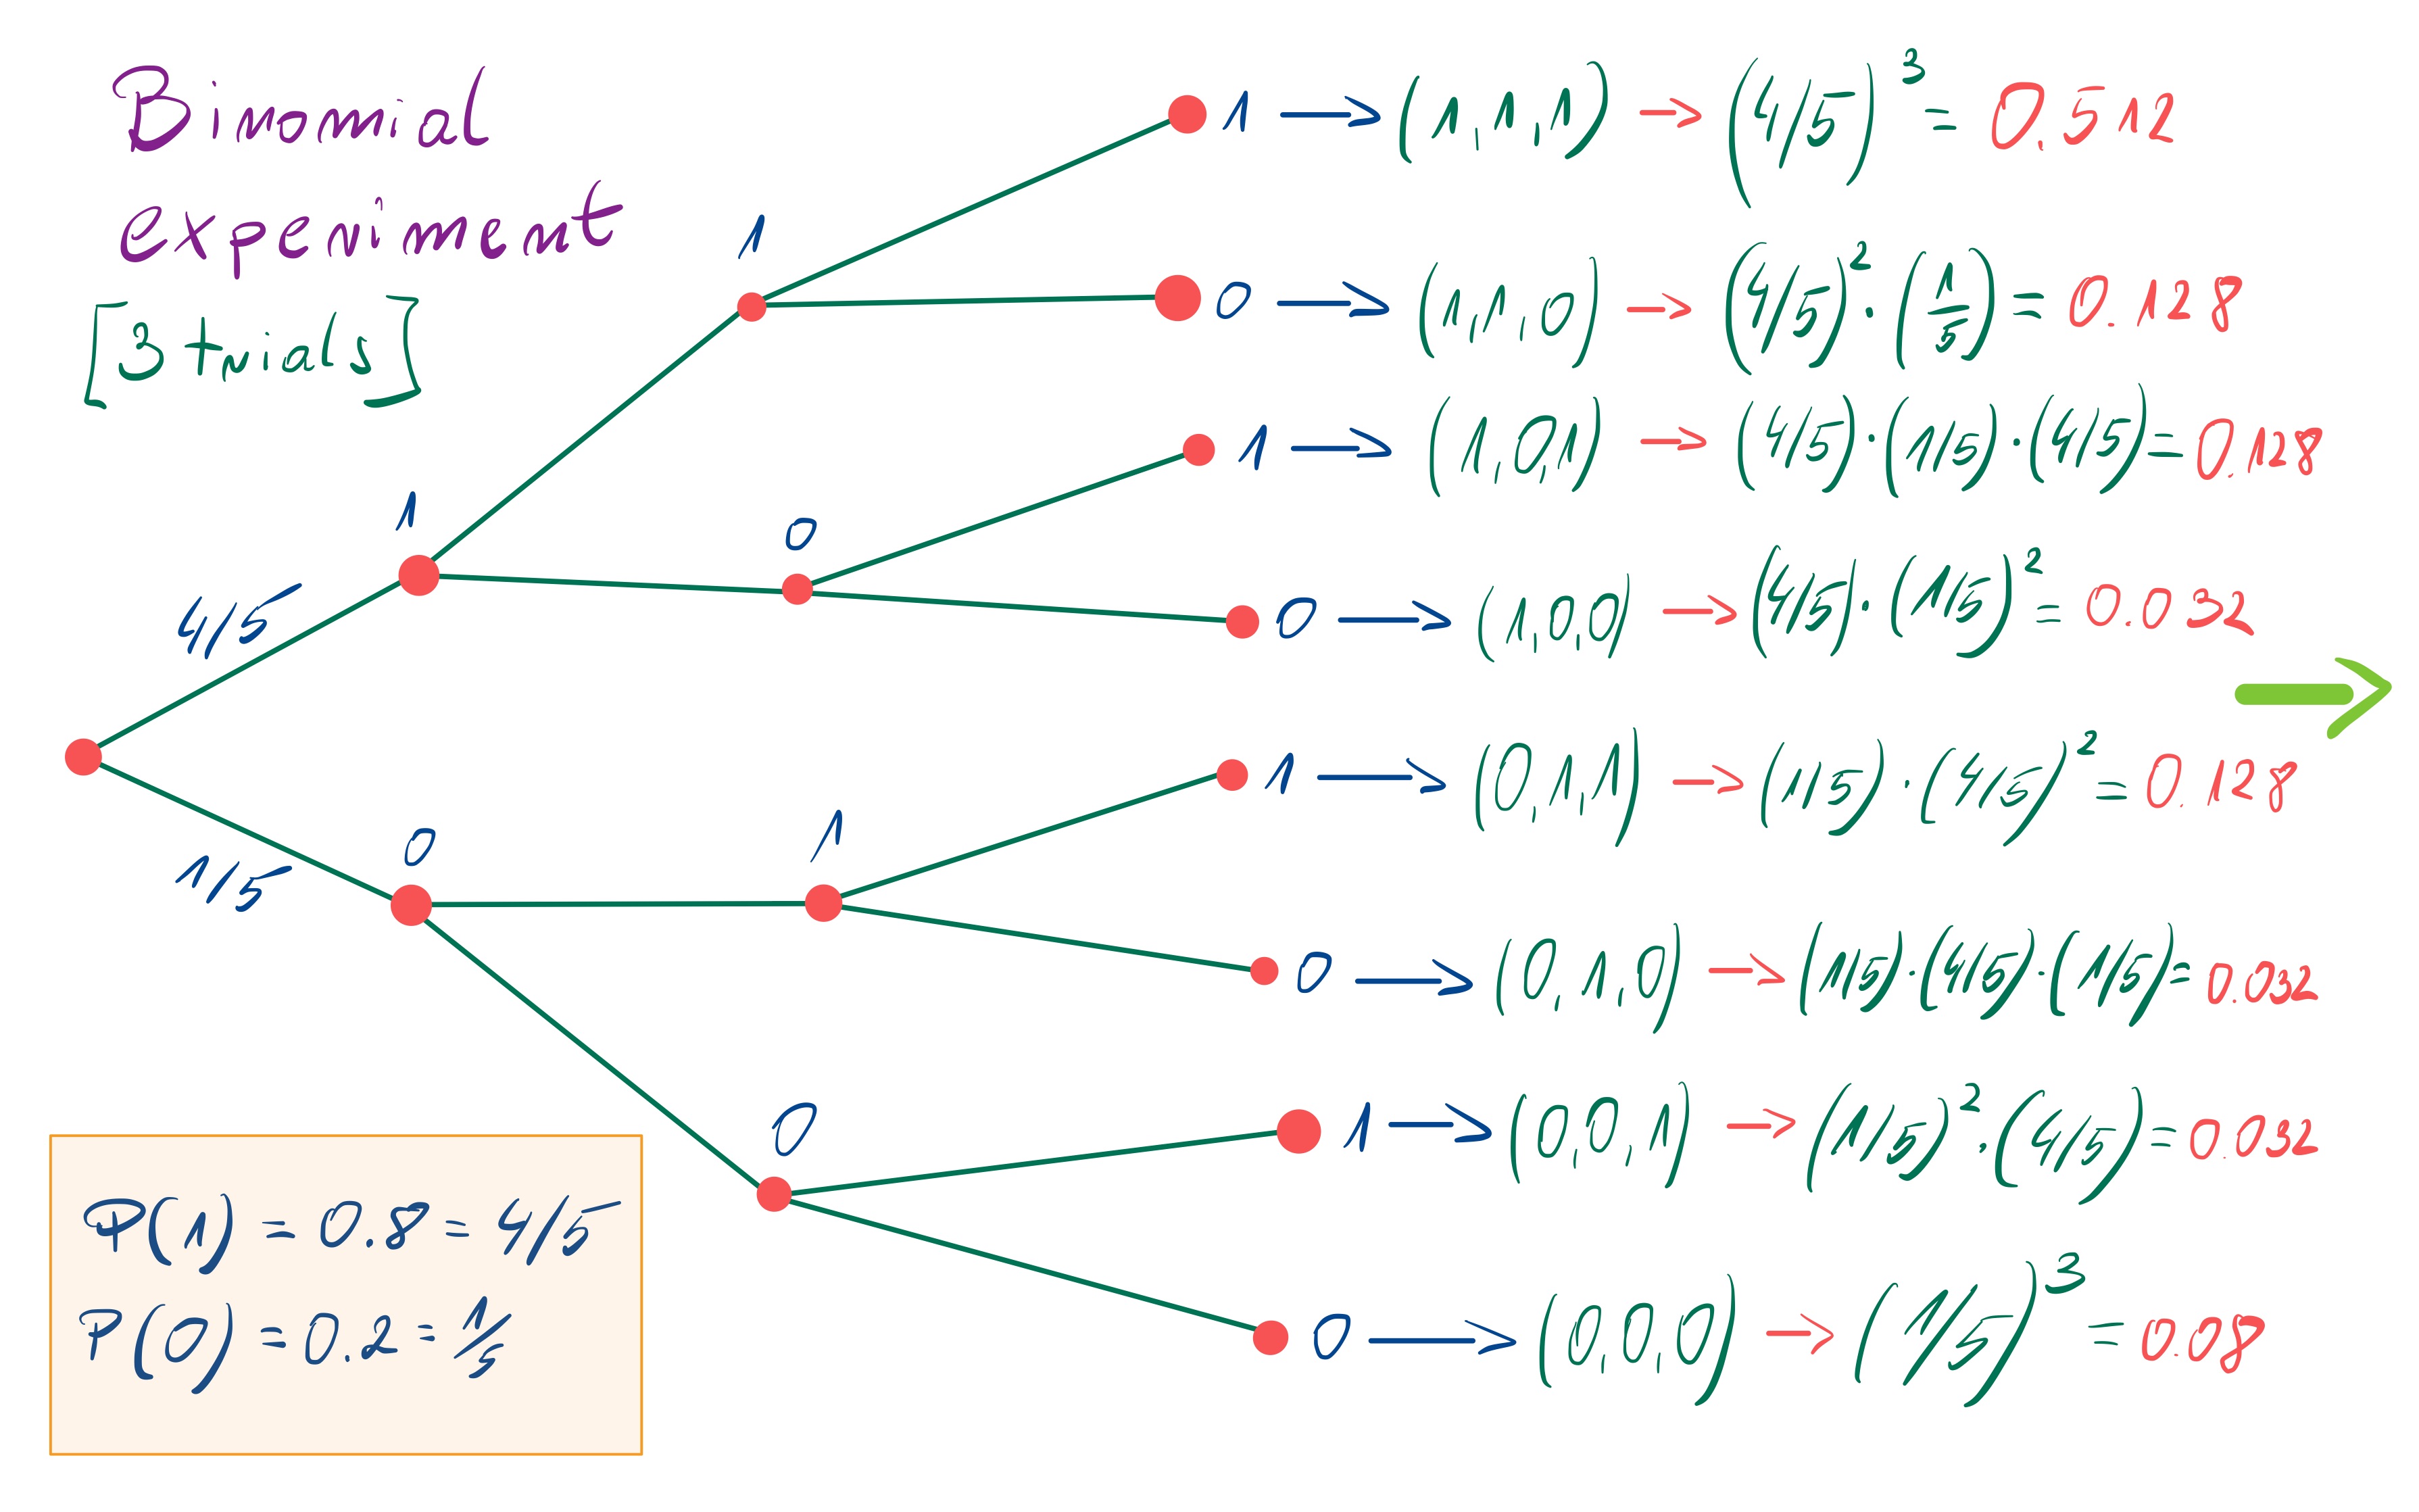 Binomial
experiment
[3 trials]
1 → (1,1,1) → (4/5)³ = 0,512
1
0 → (1,1,0) → (4/5)² · (1/5) = 0.128
1 → (1,0,1) → (4/5) · (1/5) · (4/5) = 0.128
1
0
0 → (1,0,0) → (4/5) · (1/5)² = 0.032
4/5
1 → (0,1,1) → (1/5) · (4/5)² = 0.128
0
1
1/5
0 → (0,1,0) → (1/5) · (4/5) · (1/5) = 0.032
0
1 → (0,0,1) → (1/5)² · (4/5) = 0.032
0 → (0,0,0) → (1/5)³ = 0.08
P(1) = 0.8 = 4/5
P(0) = 0.2 = 1/5